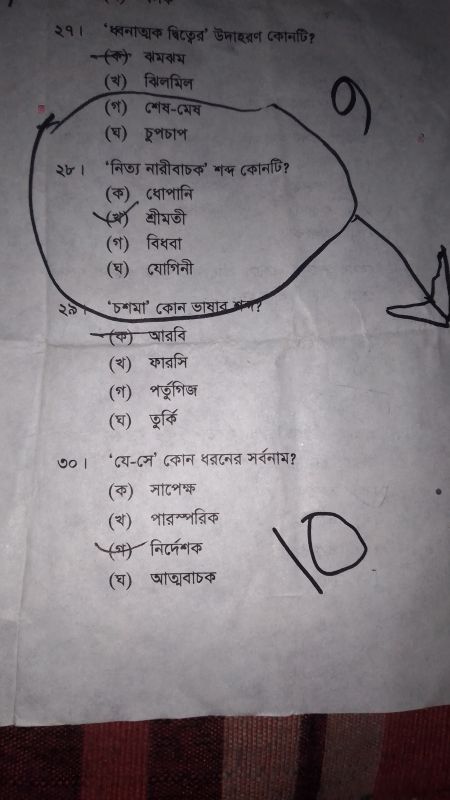 ২৭। 'ধ্বনাত্মক দ্বিত্বের' উদাহরণ কোনটি?
(ক) ঝমঝম
(খ) ঝিলমিল
(গ) শেষ-মেষ
(ঘ) চুপচাপ
9
২৮। 'নিত্য নারীবাচক' শব্দ কোনটি?
(ক) ধোপানি
(খ) শ্রীমতী
(গ) বিধবা
(ঘ) যোগিনী
২৯। 'চশমা' কোন ভাষার শব্দ?
(ক) আরবি
(খ) ফারসি
(গ) পর্তুগিজ
(ঘ) তুর্কি
৩০। 'যে-সে' কোন ধরনের সর্বনাম?
(ক) সাপেক্ষ
(খ) পারস্পরিক
(গ) নির্দেশক
(ঘ) আত্মবাচক
10